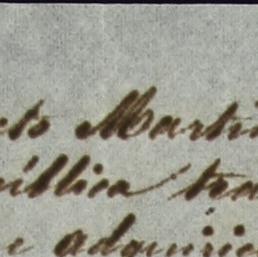 cto Marti
ública tra
adquirie